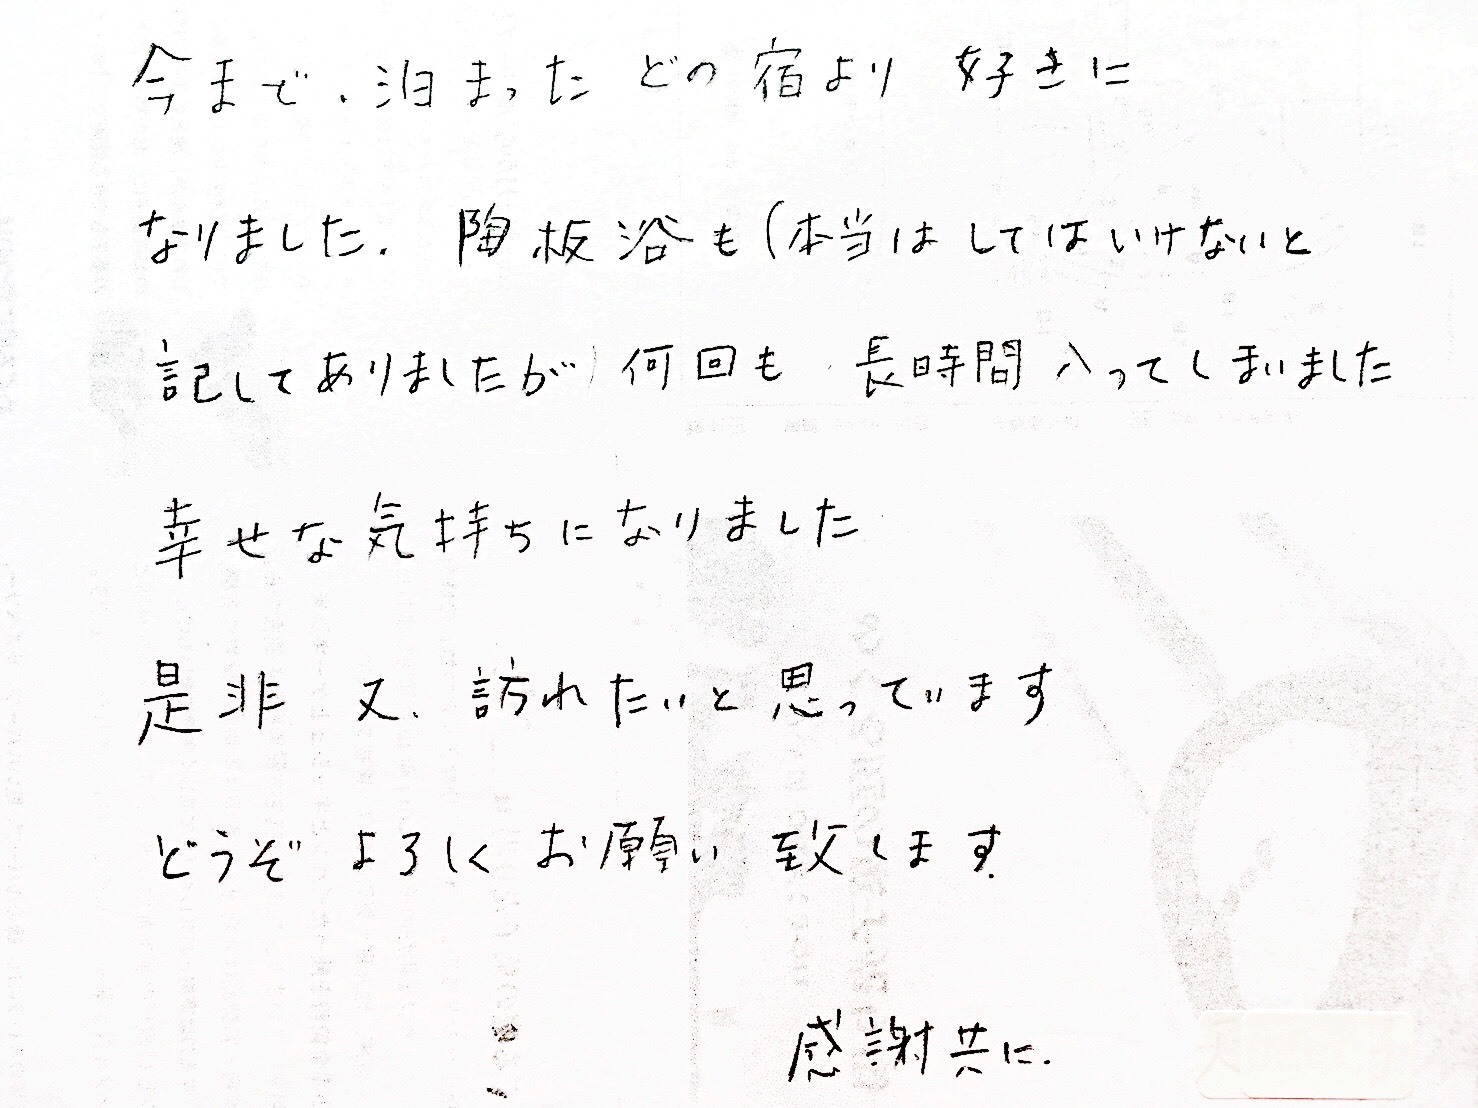 今まで、泊まったどの宿より 好きに
なりました. 陶板浴も(本当はしてはいけないと
記してありましたが)何回も 長時間入ってしまいました
幸せな気持ちになりました
是非 又、訪れたいと思っています
どうぞ よろしく お願い 致します.
感謝共に.